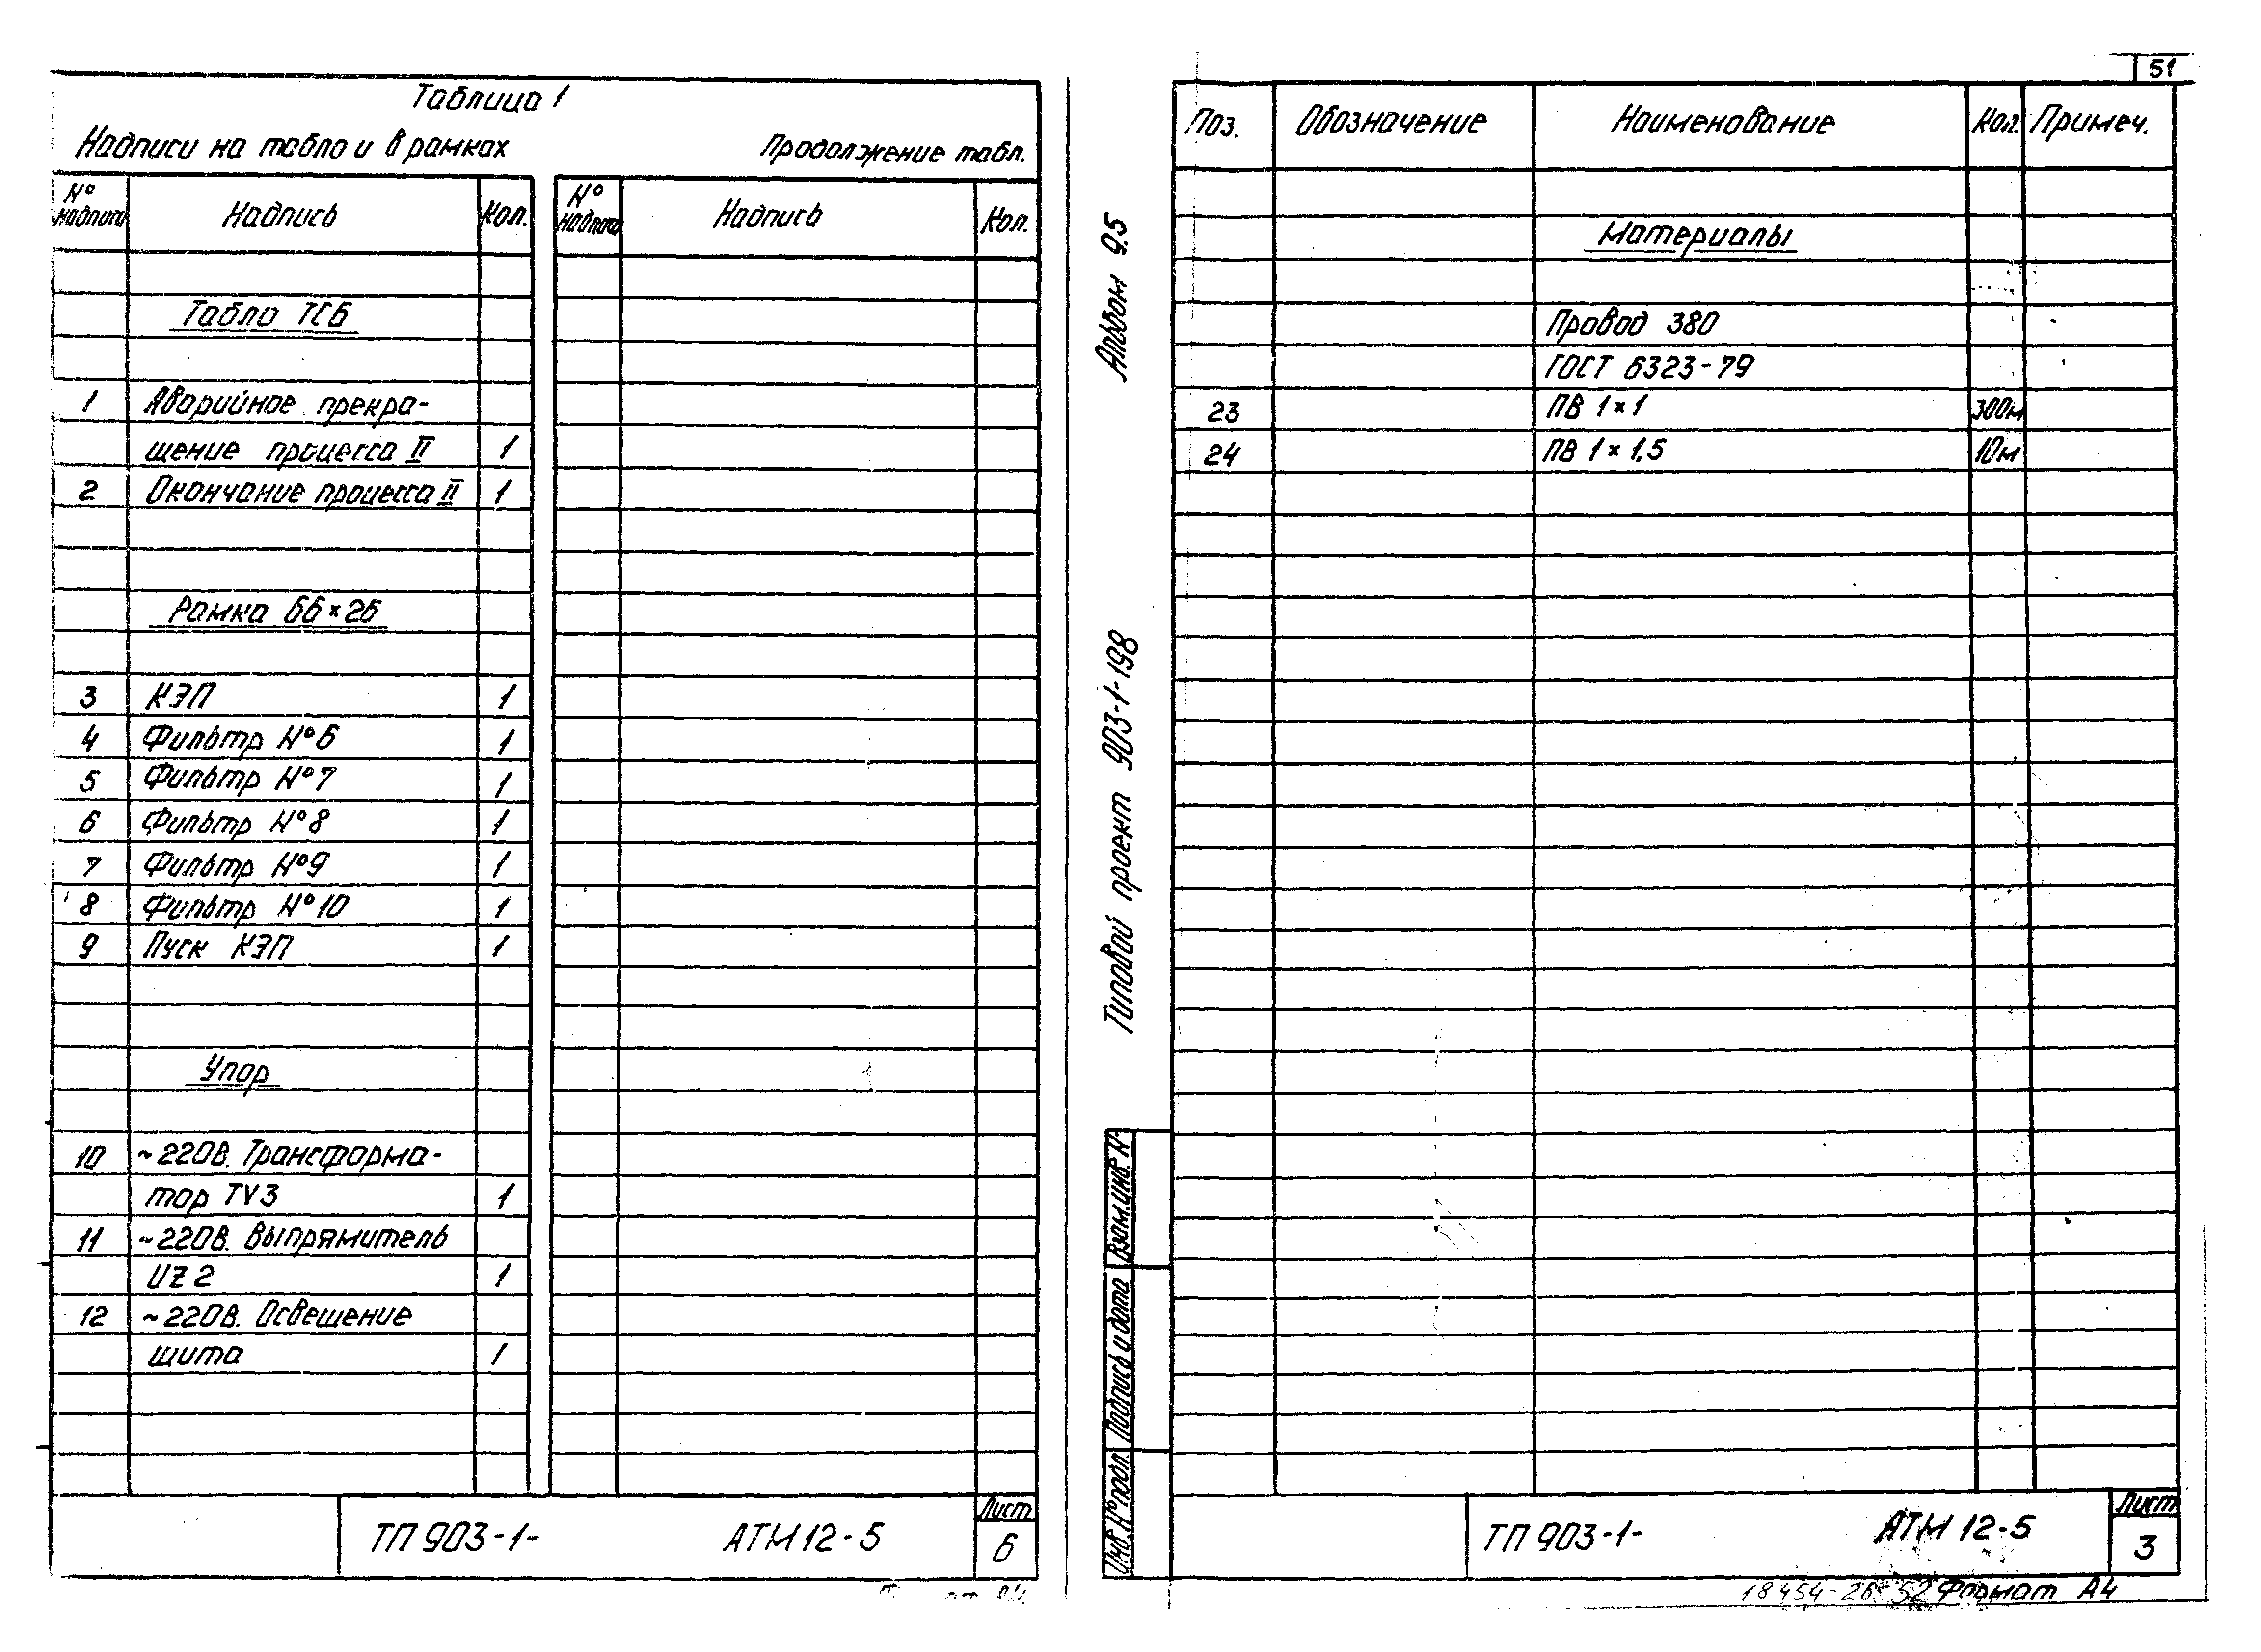 Таблица 1
Надписи на табло и в рамках
Продолжение табл.
№ надписи Надпись Кол. № надписи Надпись Кол.
Табло ТСБ
1 Аварийное прекра-
щение процесса II 1
2 Окончание процесса II 1
Рамка 66×26
3 КЭП 1
4 Фильтр №6 1
5 Фильтр №7 1
6 Фильтр №8 1
7 Фильтр №9 1
8 Фильтр №10 1
9 Пуск КЭП 1
Упор
10 ~220В. Трансформа-
тор TV3 1
11 ~220В. Выпрямитель
UZ2 1
12 ~220В. Освещение
щита 1
ТП 903-1- АТМ12-5
Лист
6
Альбом 9.5
Типовой проект 903-1-198
Взам.инв.№
Подпись и дата
Инв.№подл.
51
Поз. Обозначение Наименование Кол. Примеч.
Материалы
Провод 380
ГОСТ 6323-79
23 ПВ 1×1 300м
24 ПВ 1×1,5 10м
ТП 903-1- АТМ12-5
Лист
3
18454-26 52 Формат А4